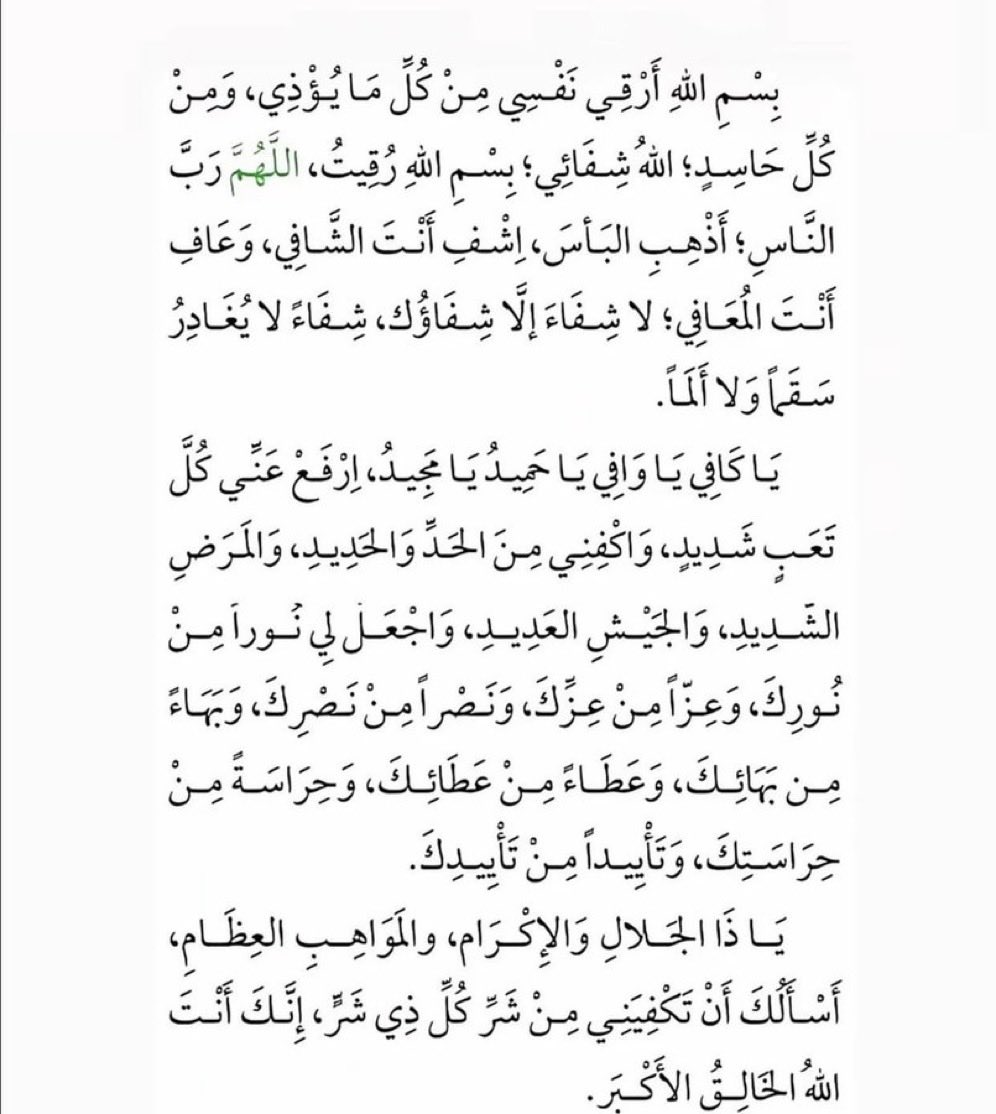 بِسْمِ اللهِ أَرْقِي نَفْسِي مِنْ كُلِّ مَا يُؤْذِي، وَمِنْ
كُلِّ حَاسِدٍ؛ اللهُ شِفَائِي؛ بِسْمِ اللهِ رُقِيتُ، اللَّهُمَّ رَبَّ
النَّاسِ؛ أَذْهِبِ البَأسَ، اِشْفِ أَنْتَ الشَّافِي، وَعَافِ
أَنْتَ المُعَافِي؛ لا شِفَاءَ إلَّا شِفَاؤُك، شِفَاءً لا يُغَادِرُ
سَقَماً وَلا أَلَمَاً.
يَا كَافِي يَا وَافِي يَا حَمِيدُ يَا مَجِيدُ، اِرْفَعْ عَنِّي كُلَّ
تَعَبٍ شَدِيدٍ، وَاكْفِنِي مِنَ الحَدِّ وَالحَدِيدِ، وَالمَرَضِ
الشَّدِيدِ، وَالجَيْشِ العَدِيدِ، وَاجْعَلْ لِي نُوراً مِنْ
نُورِكَ، وَعِزّاً مِنْ عِزِّكَ، وَنَصْراً مِنْ نَصْرِكَ، وَبَهَاءً
مِن بَهَائِكَ، وَعَطَاءً مِنْ عَطَائِكَ، وَحِرَاسَةً مِنْ
حِرَاسَتِكَ، وَتَأْيِيداً مِنْ تَأْيِيدِكَ.
يَا ذَا الجَلالِ وَالإِكْرَامِ، والمَوَاهِبِ العِظَامِ،
أَسْأَلُكَ أَنْ تَكْفِيَنِي مِنْ شَرِّ كُلِّ ذِي شَرٍّ، إِنَّكَ أَنْتَ
اللهُ الخَالِقُ الأَكْبَر.